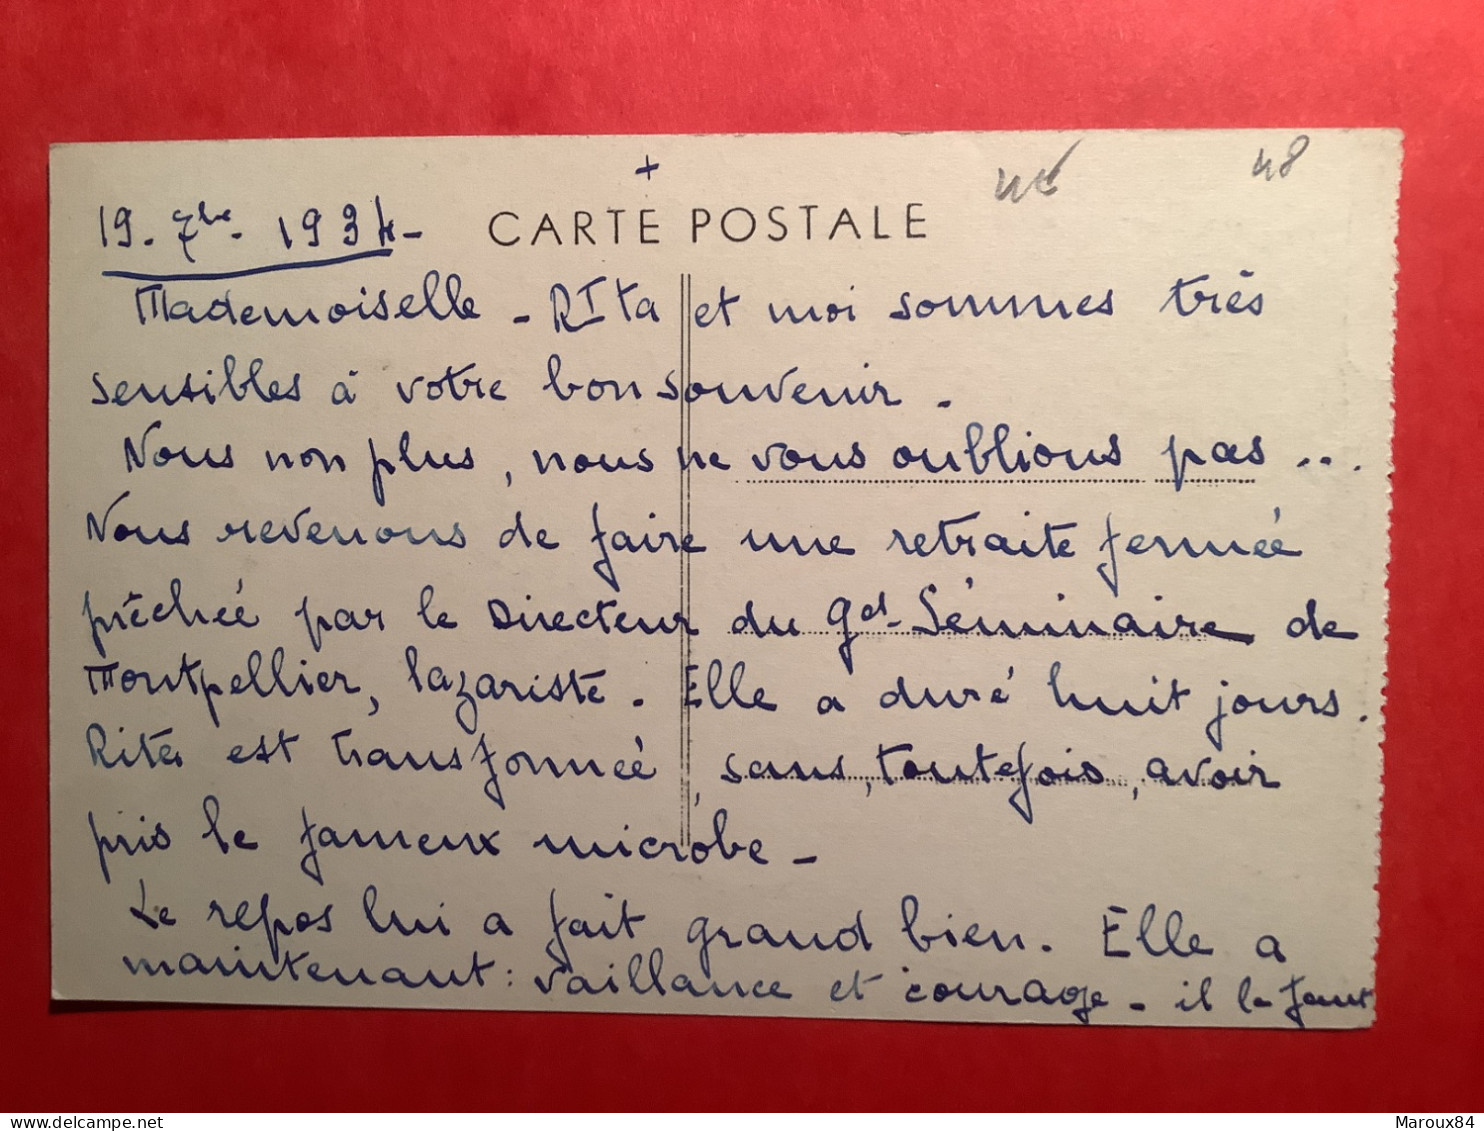 +
48
19. 7bre. 1934-
CARTE POSTALE
Mademoiselle - RIta et moi sommes très
sensibles à votre bon souvenir -
Nous non plus, nous ne vous oublions pas ...
Nous revenons de faire une retraite fermée
prêchée par le Directeur du Gd. Séminaire de
Montpellier, lazariste. Elle a duré huit jours.
Rita est transformée, sans, toutefois, avoir
pris le fameux microbe -
Le repos lui a fait grand bien. Elle a
maintenant : vaillance et courage - il le faut
Maroux84